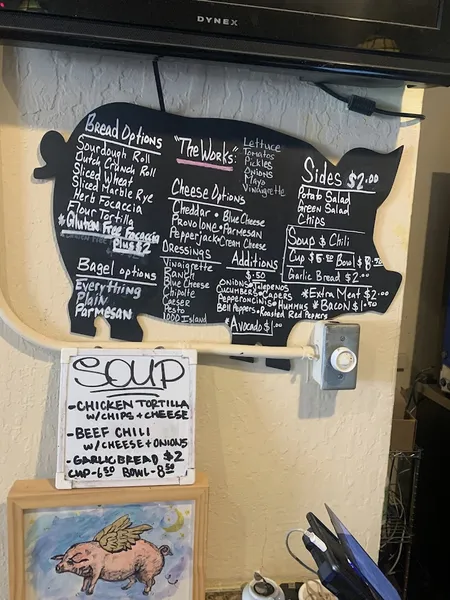 DYNEX
Bread Options
Sourdough Roll
Dutch Crunch Roll
Sliced Wheat
Sliced Marble Rye
Herb Focaccia
Flour Tortilla
*Gluten Free Focaccia
Plus $2
Bagel Options
Everything
Plain
Parmesan
"The Works:"
Lettuce
Tomatos
Pickles
Onions
Mayo
Vinaigrette
Cheese Options
Cheddar • Blue Cheese
Provolone • Parmesan
Pepperjack • Cream Cheese
Dressings
Vinaigrette
Ranch
Blue Cheese
Chipolte
Caesar
Pesto
1000 Island
Additions
$.50
Onions • Jalepenos
Cucumbers • Capers
Pepperoncinis • Hummus
Bell Peppers • Roasted Red Peppers
*Avocado $1.00
Sides $2.00
Potato Salad
Green Salad
Chips
Soup & Chili
Cup Bowl
Garlic Bread $2.00
*Extra Meat $2.00
*Bacon $1.50
SOUP
-CHICKEN TORTILLA
W/CHIPS + CHEESE
-BEEF CHILI
W/CHEESE + ONIONS
-GARLIC BREAD $2
CUP-6.50 BOWL-8.50